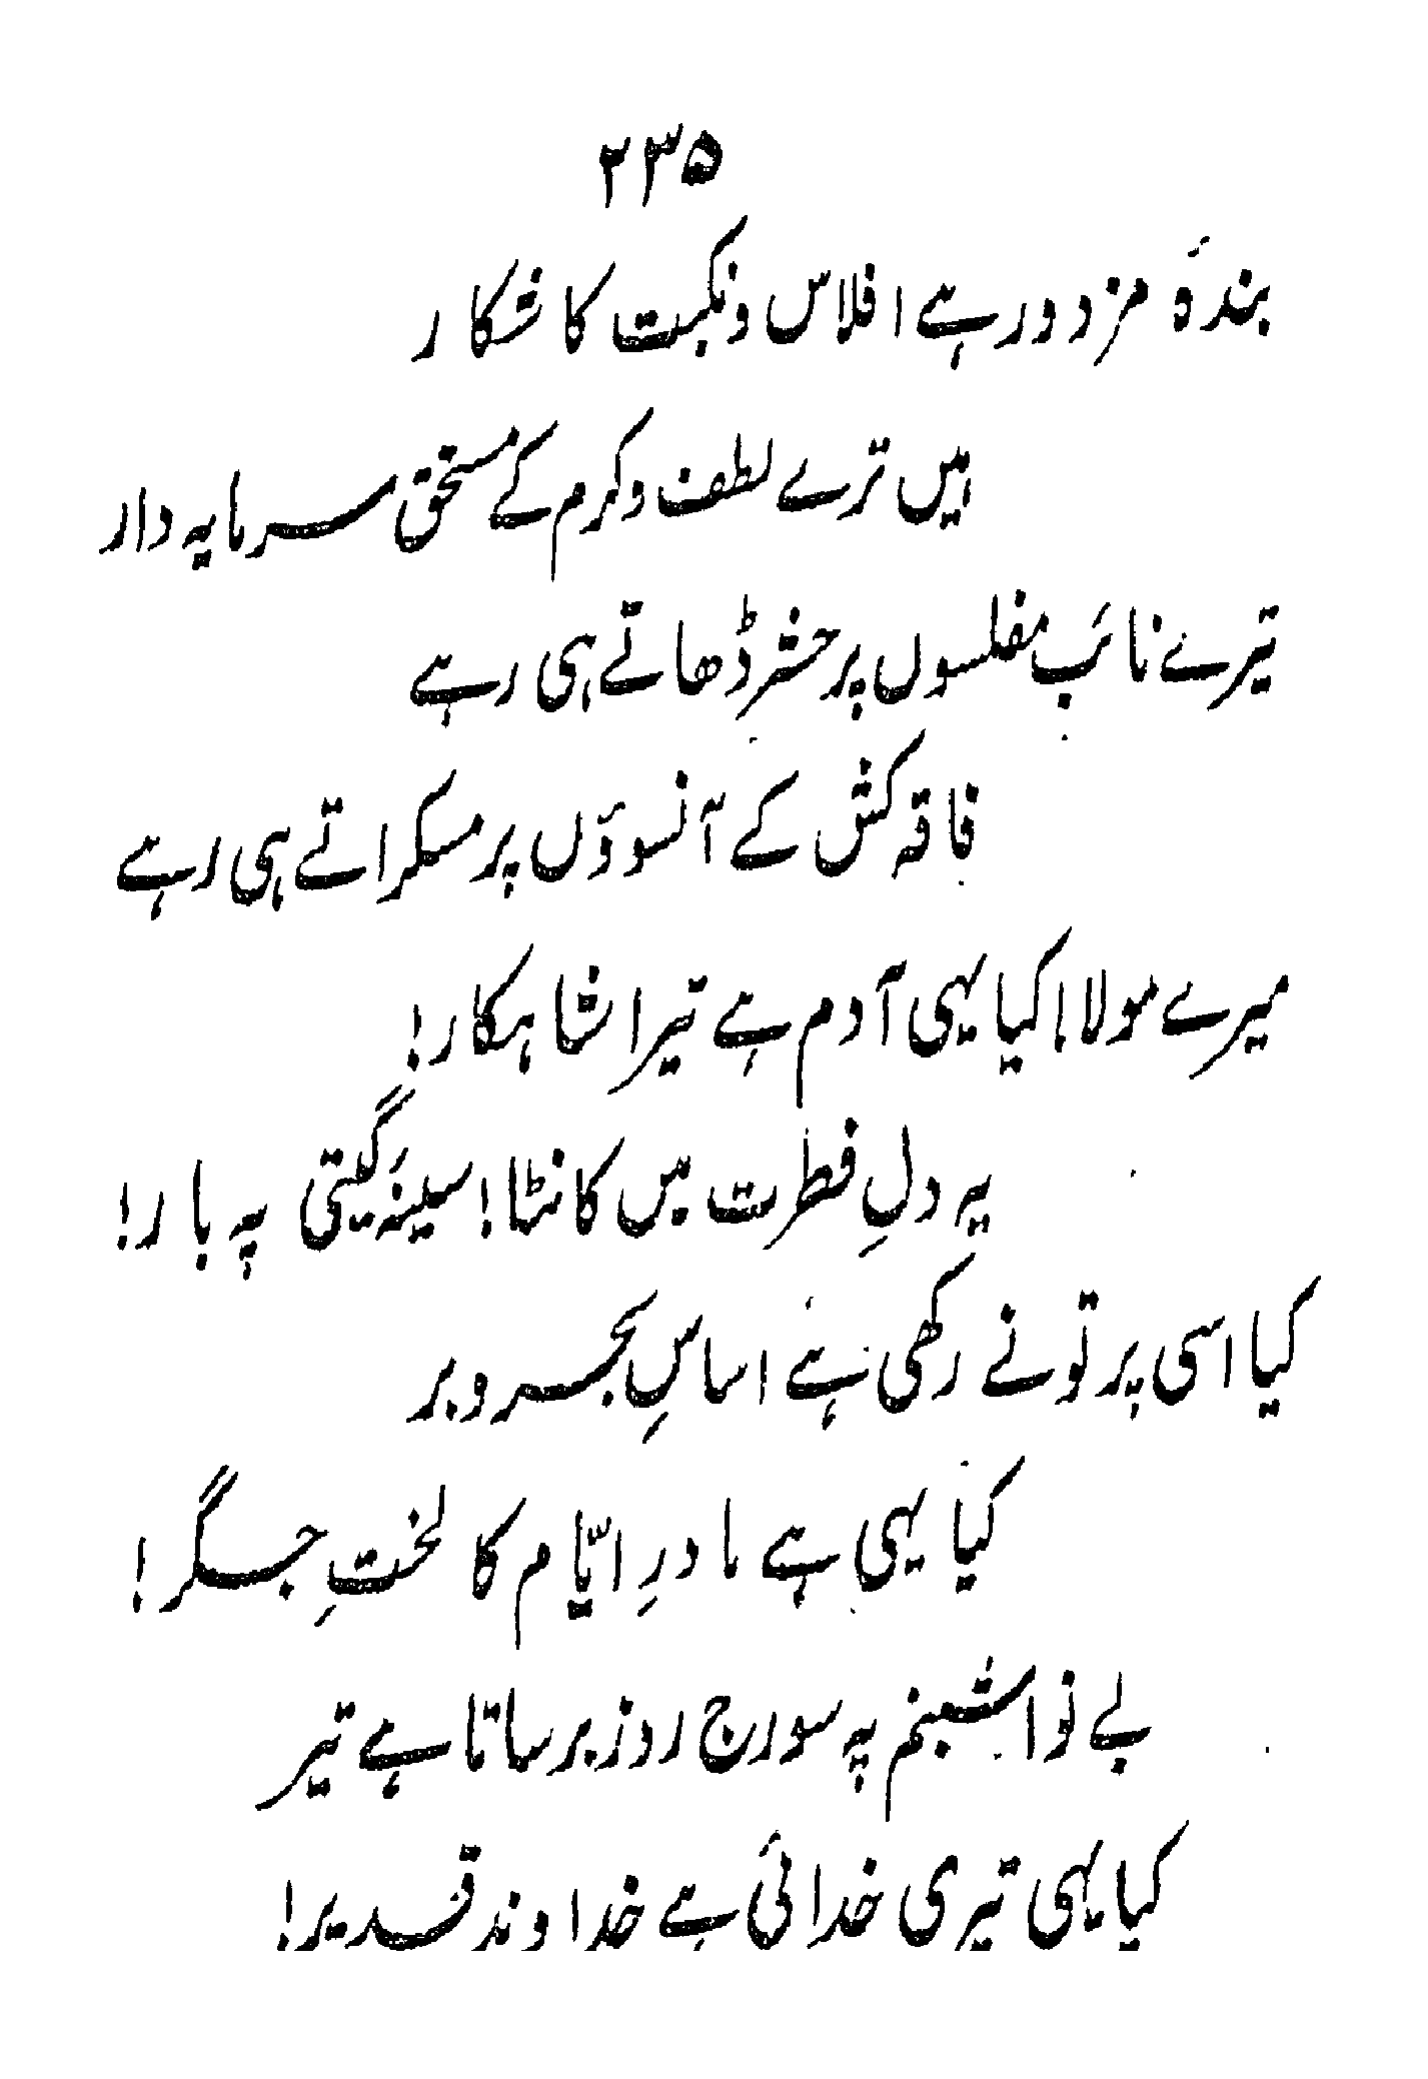 ۲۳۵
بندۂ مزدور ہے افلاس و نکبت کا شکار
ہیں ترے لطف و کرم کے مستحق سرمایہ دار
تیرے نائب مفلسوں پر حشر ڈھاتے ہی رہے
فاقہ کش کے آنسوؤں پر مسکراتے ہی رہے
میرے مولا! کیا یہی آدم ہے تیرا شاہکار!
یہ دلِ فطرت میں کانٹا! سینۂ گیتی پہ بار!
کیا اسی پر تو نے رکھی ہے اساسِ بحر و بر
کیا یہی ہے مادرِ ایّام کا لختِ جگر!
بے نوا شبنم پہ سورج روز برساتا ہے تیر
کیا یہی تیری خدائی ہے خداوند قدیر!